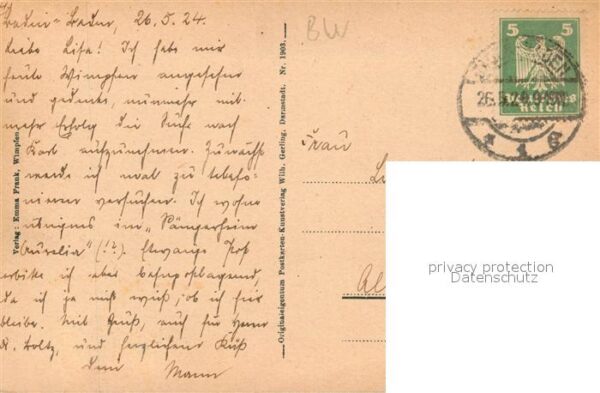 Baden-Baden, 26.5.24.
Liebe Lisa! Ich habe mir
heute Wimpfen angesehen
und gedenke, nunmehr mit
mehr Erfolg die Suche nach
Karl aufzunehmen. Zunächst
werde ich mal zu telefo-
nieren versuchen. Ich wohne
übrigens im "Sängerheim
Aurelia" (!?). Etwaige Post
erbitte ich aber
da ich ja nicht weiß, ob ich hier
bleibe. Mit Gruß, auch für Herrn
R. Holtz, und herzlichem Kuß
Dein Mann
Verlag: Emma Frank, Wimpfen
Originaleigentum Postkarten-Kunstverlag Wilh. Gerling, Darmstadt. Nr. 1903.
BW
5 5
Reich
Frau
privacy protection
Datenschutz